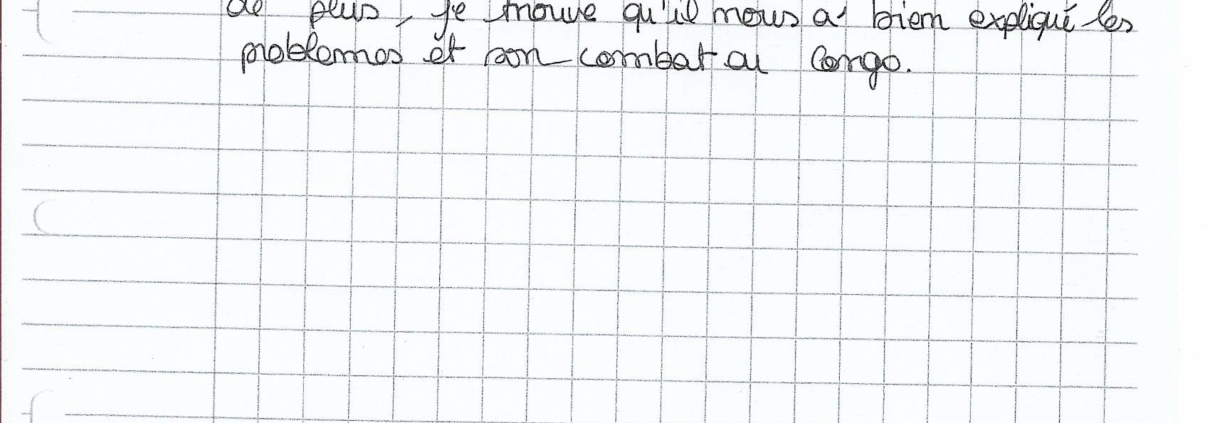 de plus, je trouve qu'il nous a bien expliqué les
problemes et son combat au Congo.